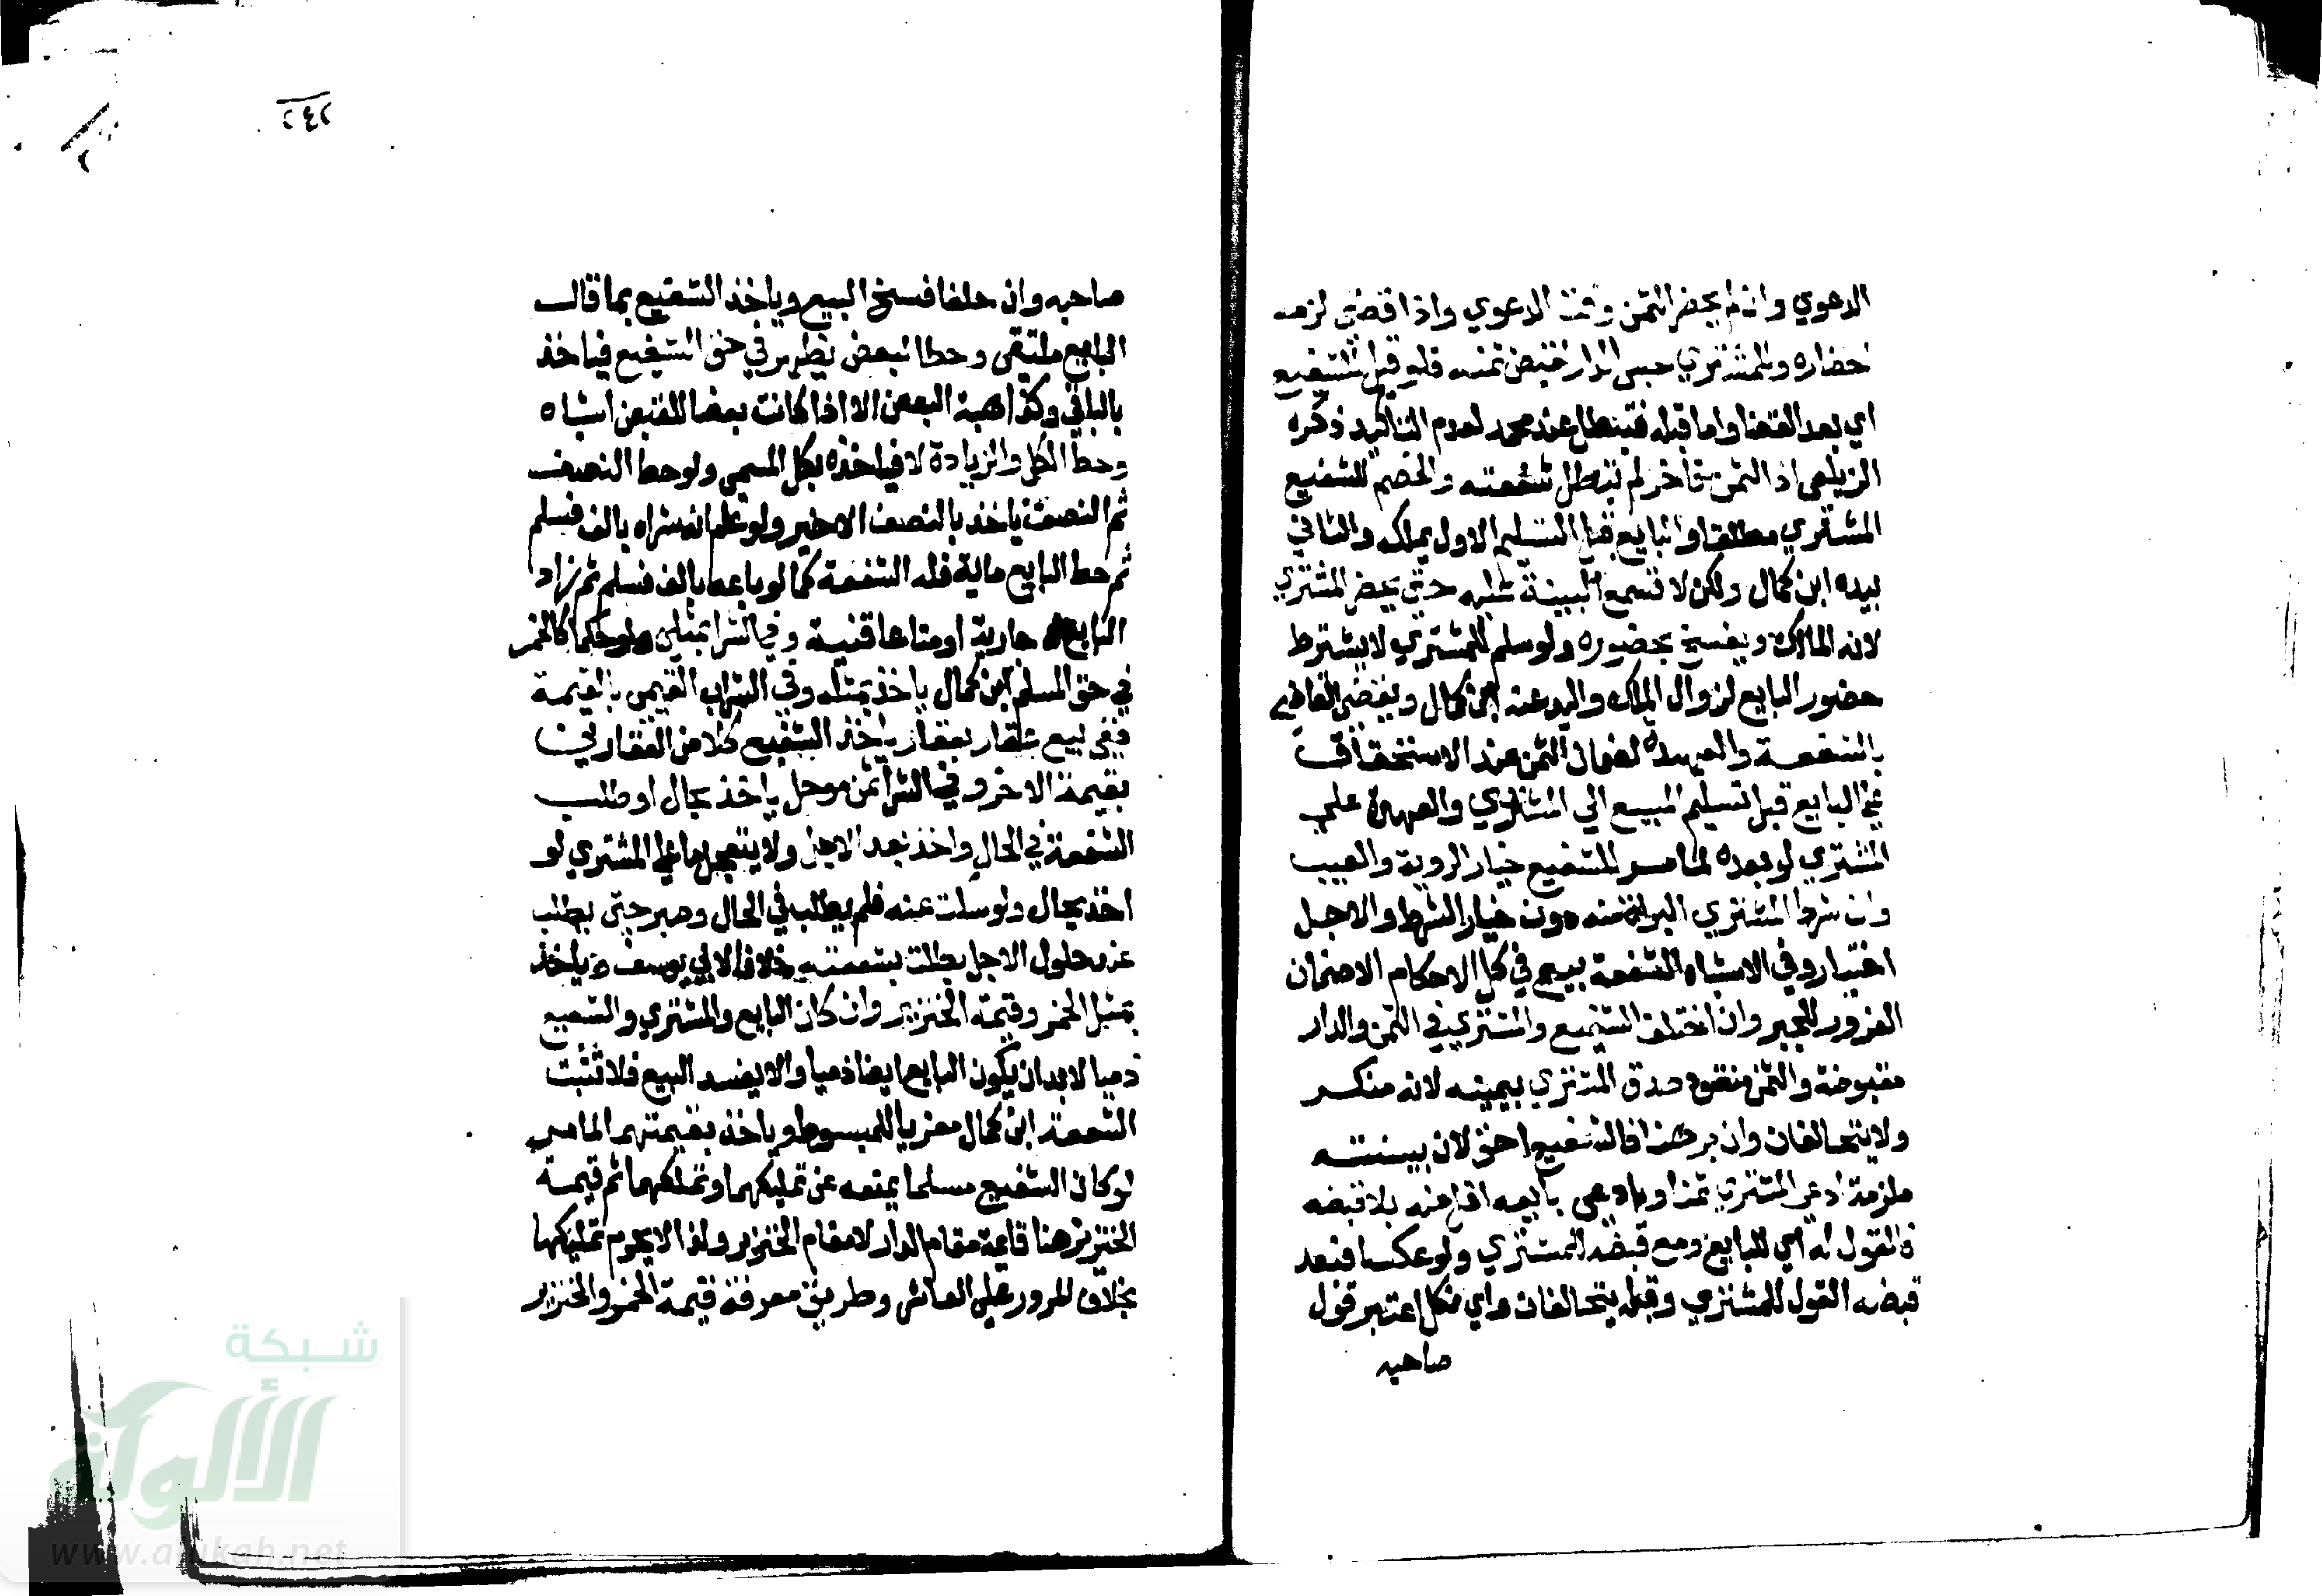 الدعوي وان لم يحضر الثمن وقت الدعوي واذا قضي لزمه
احضاره وللمشتري حبس الدار لقبض ثمنه فلو قيل للشفيع
اي بعد القضا واما قبله فتبطل عند محمد لعدم التاكيد ذكره
الزيلعي اد الثمن فاخر لم تبطل شفعته والخصم للشفيع
المشتري مطلقا والبايع قبل التسليم الاول بملكه والثاني
بيده ابن كمال ولكن لا تسمع البينة عليه حتي يحضر المشتري
لانه المالك ويفسخ بحضوره ولو سلم للمشتري لا يشترط
حضور البايع لزوال الملك واليد عنه ابن كمال ويقضي القاضي
بالشفعة والعهدة لضمان الثمن عند الاستحقاق
علي البايع قبل تسليم المبيع الي المشتري والعهدة علي
المشتري لو بعده لما مر للشفيع خيار الروية والعيب
وان شرط المشتري البراة منه دون خيار الشرط والاجل
اختيار وفي الاشباه الشفعة بيع في كل الاحكام الا ضمان
الغرور للجبر وان اختلف الشفيع والمشتري في الثمن والدار
مقبوضة والثمن منقود صدق المشتري بيمينه لانه منكر
ولا يتحالفان وان برهنا فالشفيع احق لان بينته
ملزمة ادعي المشتري ثمنا وادعي بايعه اقل منه بلا قبضه
فالقول له اي للبايع ومع قبضه للمشتري ولو عكسا فبعد
قبضه القول للمشتري وقبله يتحالفان واي نكل اعتبر قول
صاحبه
٢٤٢
صاحبه وان حلفا فسخ البيع وياخذ الشفيع بما قال
البايع ملتقي وحط البعض يظهر في حق الشفيع فياخذ
بالباقي وكذا هبة البعض الا اذا كانت بعد القبض اشباه
وحط الكل والزيادة لا فياخذه بكل المسمي ولو حط النصف
ثم النصف ياخذ بالنصف الاخير ولو علم انه شراه بالف فسلم
ثم حط البايع ماية فله الشفعة كما لو باعه بالف فسلم ثم زاد
البايع جارية او متاعا قنية وفي الشرا بمثلي ولو حكما كالخمر
في حق المسلم ابن كمال ياخذ بمثله وفي الشرا القيمي بالقيمة
ففي بيع عقار بعقار ياخذ الشفيع كلا من العقارين
بقيمة الاخر وفي الشرا بثمن موجل ياخذ بحال او طلب
الشفعة في الحال واخذ بعد الاجل ولا يتعجل ما علي المشتري لو
اخذ بحال ولو سكت عنه فلم يطلب في الحال وصبر حتي يطلب
عند حلول الاجل بطلت شفعته خلافا لابي يوسف وياخذ
بمثل الخمر وقيمة الخنزير وان كان البايع والمشتري والشفيع
ذميا لا بد ان يكون البايع ايضا ذميا والا يفسد البيع فلا تثبت
الشفعة ابن كمال معزيا للمبسوط وياخذ بقيمتهما لما مر
لو كان الشفيع مسلما يمنعه عن تمليكهما وتملكهما ثم قيمة
الخنزير هنا قايمة مقام الدار لا مقام الخنزير ولذا لا يحرم تمليكها
بخلاف المرور علي العاشر وطريق معرفة قيمة الخمر والخنزير
شبكة
الألوكة
www.alukah.net